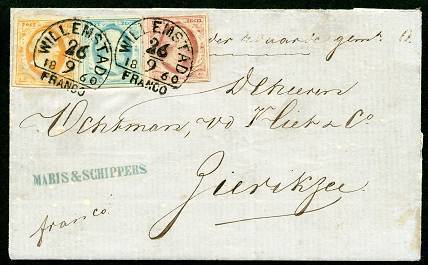 WILLEMSTAD
26
9
18 60
FRANCO
WILLEMSTAD
26
9
18 60
FRANCO
der waarde
De Heeren
Ochtman, v/d Vliet & Co.
Zierikzee
MARIS & SCHIPPERS
franco